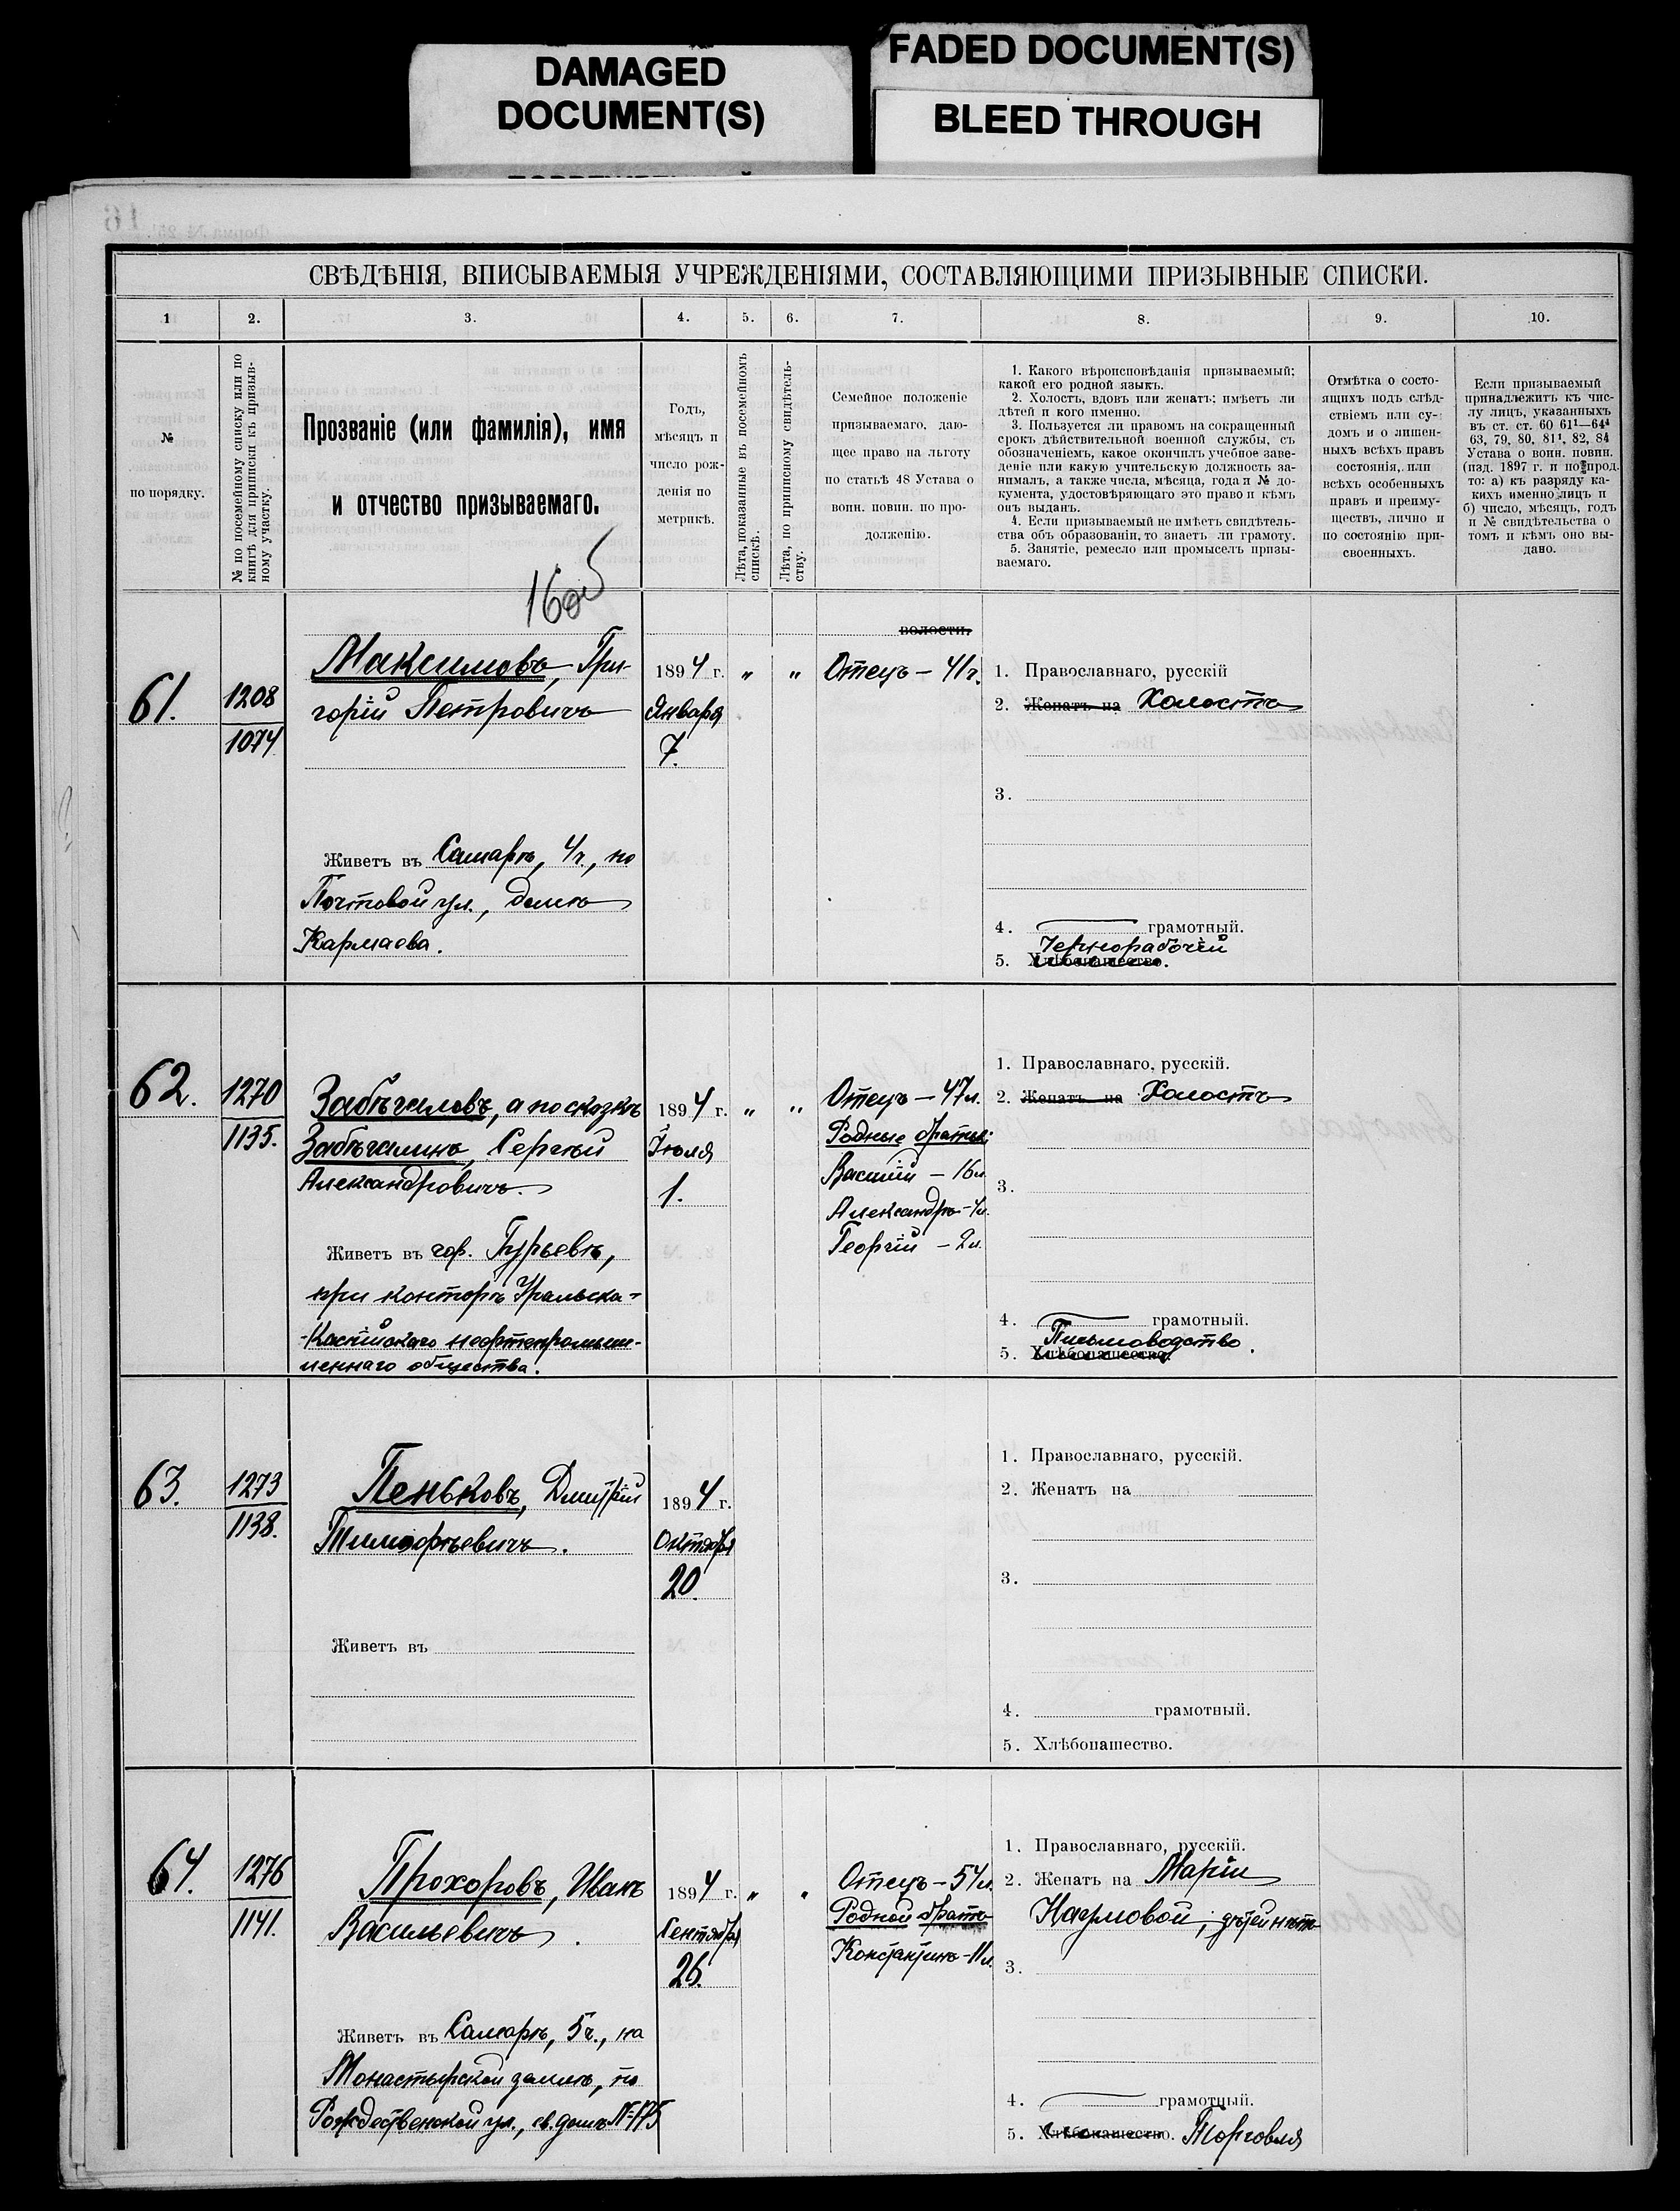 DAMAGED
DOCUMENT(S)
FADED DOCUMENT(S)
BLEED THROUGH
СВѢДѢНІЯ, ВПИСЫВАЕМЫЯ УЧРЕЖДЕНІЯМИ, СОСТАВЛЯЮЩИМИ ПРИЗЫВНЫЕ СПИСКИ.
1 2. 3. 4. 5. 6. 7. 8. 9. 10.
№
по порядку.
№ по посемейному списку или по
книгѣ для приписки къ призыв-
ному участку.
Прозваніе (или фамилія), имя
и отчество призываемаго.
Годъ,
мѣсяцъ и
число рож-
денія по
метрикѣ.
Лѣта, показанные въ посемейномъ
спискѣ.
Лѣта, по приписному свидѣтель-
ству.
Семейное положеніе
призываемаго, даю-
щее право на льготу
по статьѣ 48 Устава о
воин. повин. по про-
долженію.
1. Какого вѣроисповѣданія призываемый;
какой его родной языкъ.
2. Холостъ, вдовъ или женатъ; имѣетъ ли
дѣтей и кого именно.
3. Пользуется ли правомъ на сокращенный
срокъ дѣйствительной военной службы, съ
обозначеніемъ, какое окончилъ учебное заве-
деніе или какую учительскую должность за-
нималъ, а также числа, мѣсяца, года и № до-
кумента, удостовѣряющаго это право и кѣмъ
онъ выданъ.
4. Если призываемый не имѣетъ свидѣтель-
ства объ образованіи, то знаетъ ли грамоту.
5. Занятіе, ремесло или промыселъ призы-
ваемаго.
Отмѣтка о состо-
ящихъ подъ слѣд-
ствіемъ или су-
домъ и о лишен-
ныхъ всѣхъ правъ
состоянія, или
всѣхъ особенныхъ
правъ и преиму-
ществъ, лично и
по состоянію при-
своенныхъ.
Если призываемый
принадлежитъ къ чис-
лу лицъ, указанныхъ
въ ст. ст. 60 61¹—64⁴
63, 79, 80, 81¹, 82, 84
Устава о воин. повин.
(изд. 1897 г. и по прод.
то: а) къ разряду ка-
кихъ именно лицъ и
б) число, мѣсяцъ, годъ
и № свидѣтельства о
томъ и кѣмъ оно вы-
дано.
16об
волости,
61.
1208
1074
Максимовъ, Гри-
горій Петровичъ
1894 г.
Января
7.
" "
Отецъ – 41 г.
1. Православнаго, русскій
2. Женатъ на Холостъ
3.
Живетъ въ Самарѣ, 4 ч., по
Почтовой ул., домъ
Кармаева.
4. грамотный.
Чернорабочій
5. Хлѣбопашество.
62.
1270
1135.
Забѣгаловъ, а по сказкѣ
Забѣгалинъ, Сергѣй
Александровичъ.
1894 г.
Іюля
1.
" "
Отецъ – 47 л.
Родные братья:
Василій – 16 л.
Александръ – 4 л.
Георгій – 2 л.
1. Православнаго, русскій.
2. Женатъ на Холостъ
3.
Живетъ въ гор. Гурьевѣ,
при конторѣ Уральско-
-Каспійскаго нефтепромыш-
леннаго общества.
4. грамотный.
Письмоводство
5. Хлѣбопашество.
63.
1273
1138.
Пеньковъ, Дмитрій
Тимофѣевичъ.
1894 г.
Октября
20.
1. Православнаго, русскій.
2. Женатъ на
3.
Живетъ въ
4. грамотный.
5. Хлѣбопашество.
64.
1276
1141.
Прохоровъ, Иванъ
Васильевичъ.
1894 г.
Сентября
26.
" "
Отецъ – 54 л.
Родной братъ
Константинъ – 11 л.
1. Православнаго, русскій.
2. Женатъ на Маріи
Наумовой; дѣтей нѣтъ
3.
Живетъ въ Самарѣ, 5 ч., на
Монастырской дачѣ, по
Рождественской ул., св. домъ № 175
4. грамотный.
5. Хлѣбопашество. Торговля